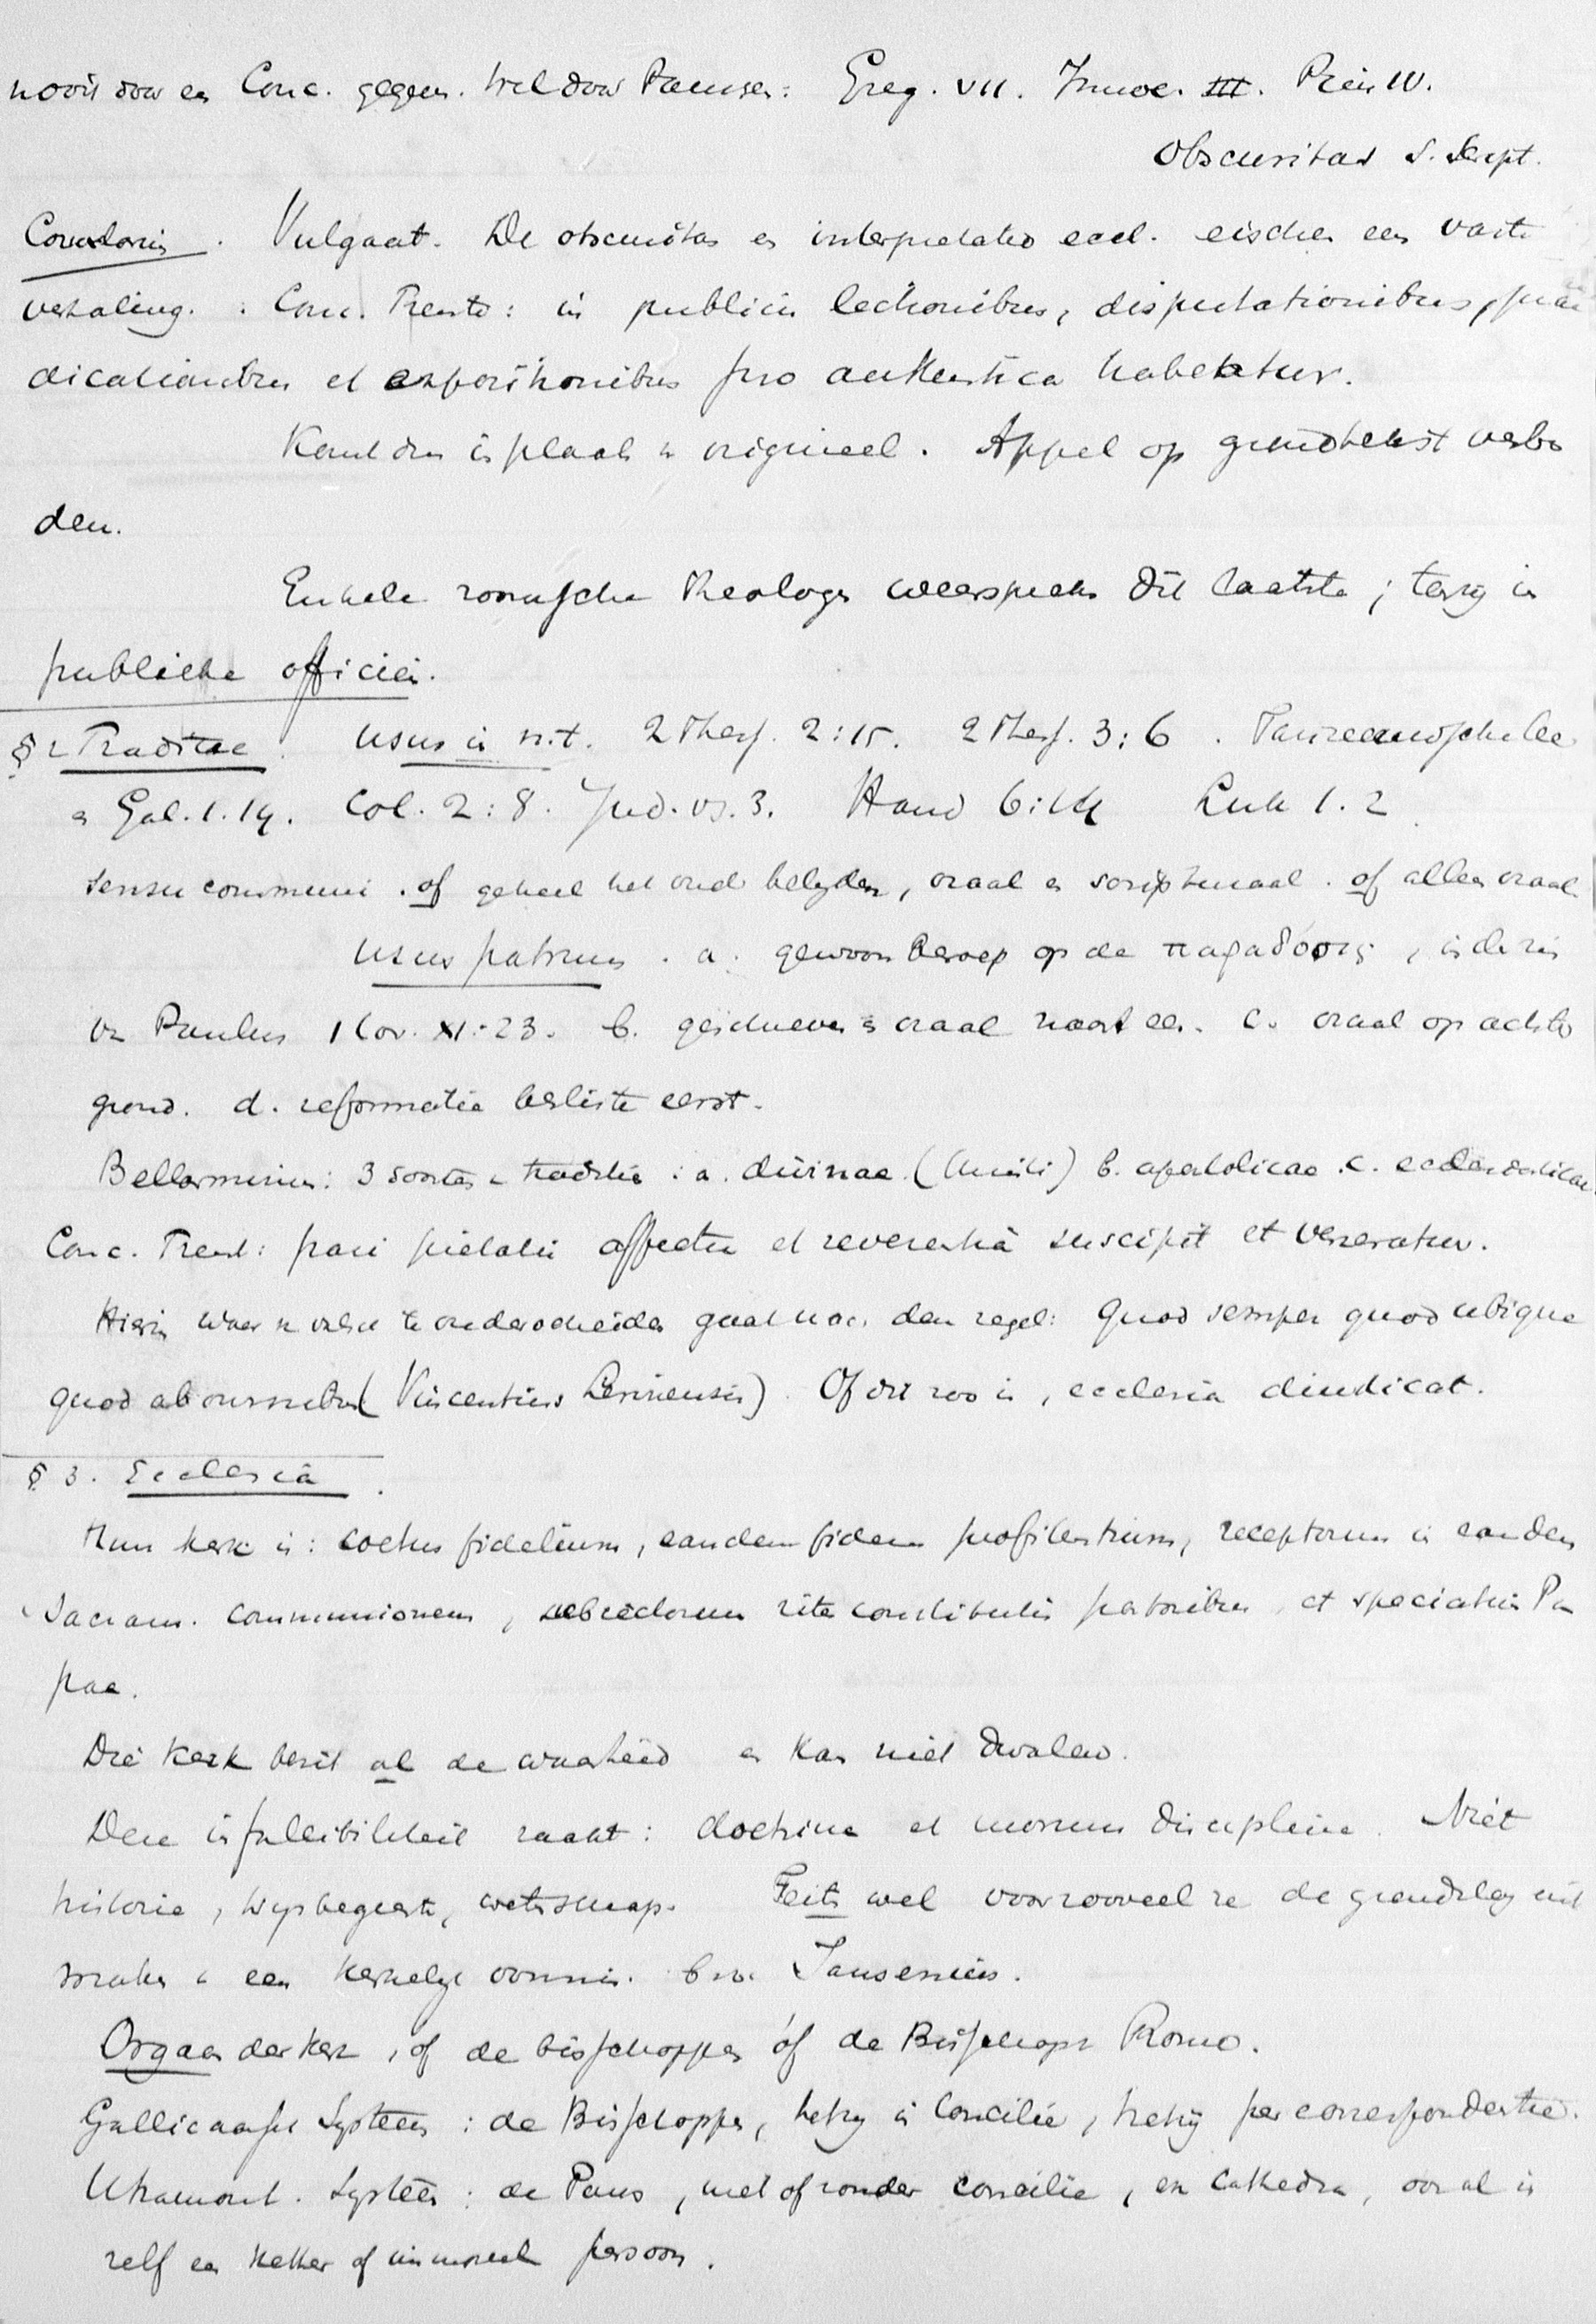 nooit door een Conc. gegeven. Wel door Pausen: Greg. VII. Innoc. III. Pius IV.
Obscuritas S. Script.
Corollaris. Vulgaat. De obscuritas en interpretatio eccl. eischen een vaste
vertaling. Conc. Trente: in publicis lectionibus, disputationibus, prae
dicationibus et expositionibus pro authentica habeatur.
Komt dus in plaats v origineel. Appel op grondtekst verbo
den.
Enkele roomsche theologen weerspreken dit laatste; tenzij in
publieke officiën.
§ 2 Traditie. Usus in N.T. 2 Thess. 2:15. 2 Thess. 3:6.
a Gal. 1.14. Col. 2:8. Jud. vs. 3. Hand 6:14 Luk 1.2
sensu communi. of geheel het oude belijden, oraal en scriptuaal. of alleen oraal
Usus patrum. a. gewoon beroep op de παράδοσις, in de zin
v Paulus 1 Cor. XI:23. b. geschreven en oraal naast een. c. oraal op achter
grond. d. reformatie besliste eerst.
Bellarminus: 3 soorten v traditie: a. divinae (Christi) b. apostolicae. c. ecclesiasticae
Conc. Trent: pari pietatis affectu et reverentia suscipit et veneratur.
Hierin waar v valsch te onderscheiden gaat naar den regel: Quod semper quod ubique
quod ab omnibus (Vincentius Lerinensis). Of dit zoo is, ecclesia diudicat.
§ 3. Ecclesia.
Hun kerk is: coetus fidelium, eandem fidem profitentium, receptorum in eandem
Sacram. communionem, subiectorum rite constitutis pastoribus, et speciatim Pa
pae.
Die kerk bezit al de waarheid en kan niet dwalen.
Deze infallibiliteit raakt: doctrina et morum disciplina. Niet
historie, wijsbegeerte, wetenschap. Feiten wel voorzooveel ze de grondslag uit
maken v een kerkelijk vonnis. b.v. Jansenius.
Orgaan der kerk, of de bisschoppen óf de Bisschop v Rome.
Gallicaansch Systeem: de Bisschoppen, hetzij in Concilie, hetzij per correspondentie.
Ultramont. Systeem: de Paus, met of zonder concilie, ex Cathedra, ook al is
zelf een ketter of immoreel persoon.